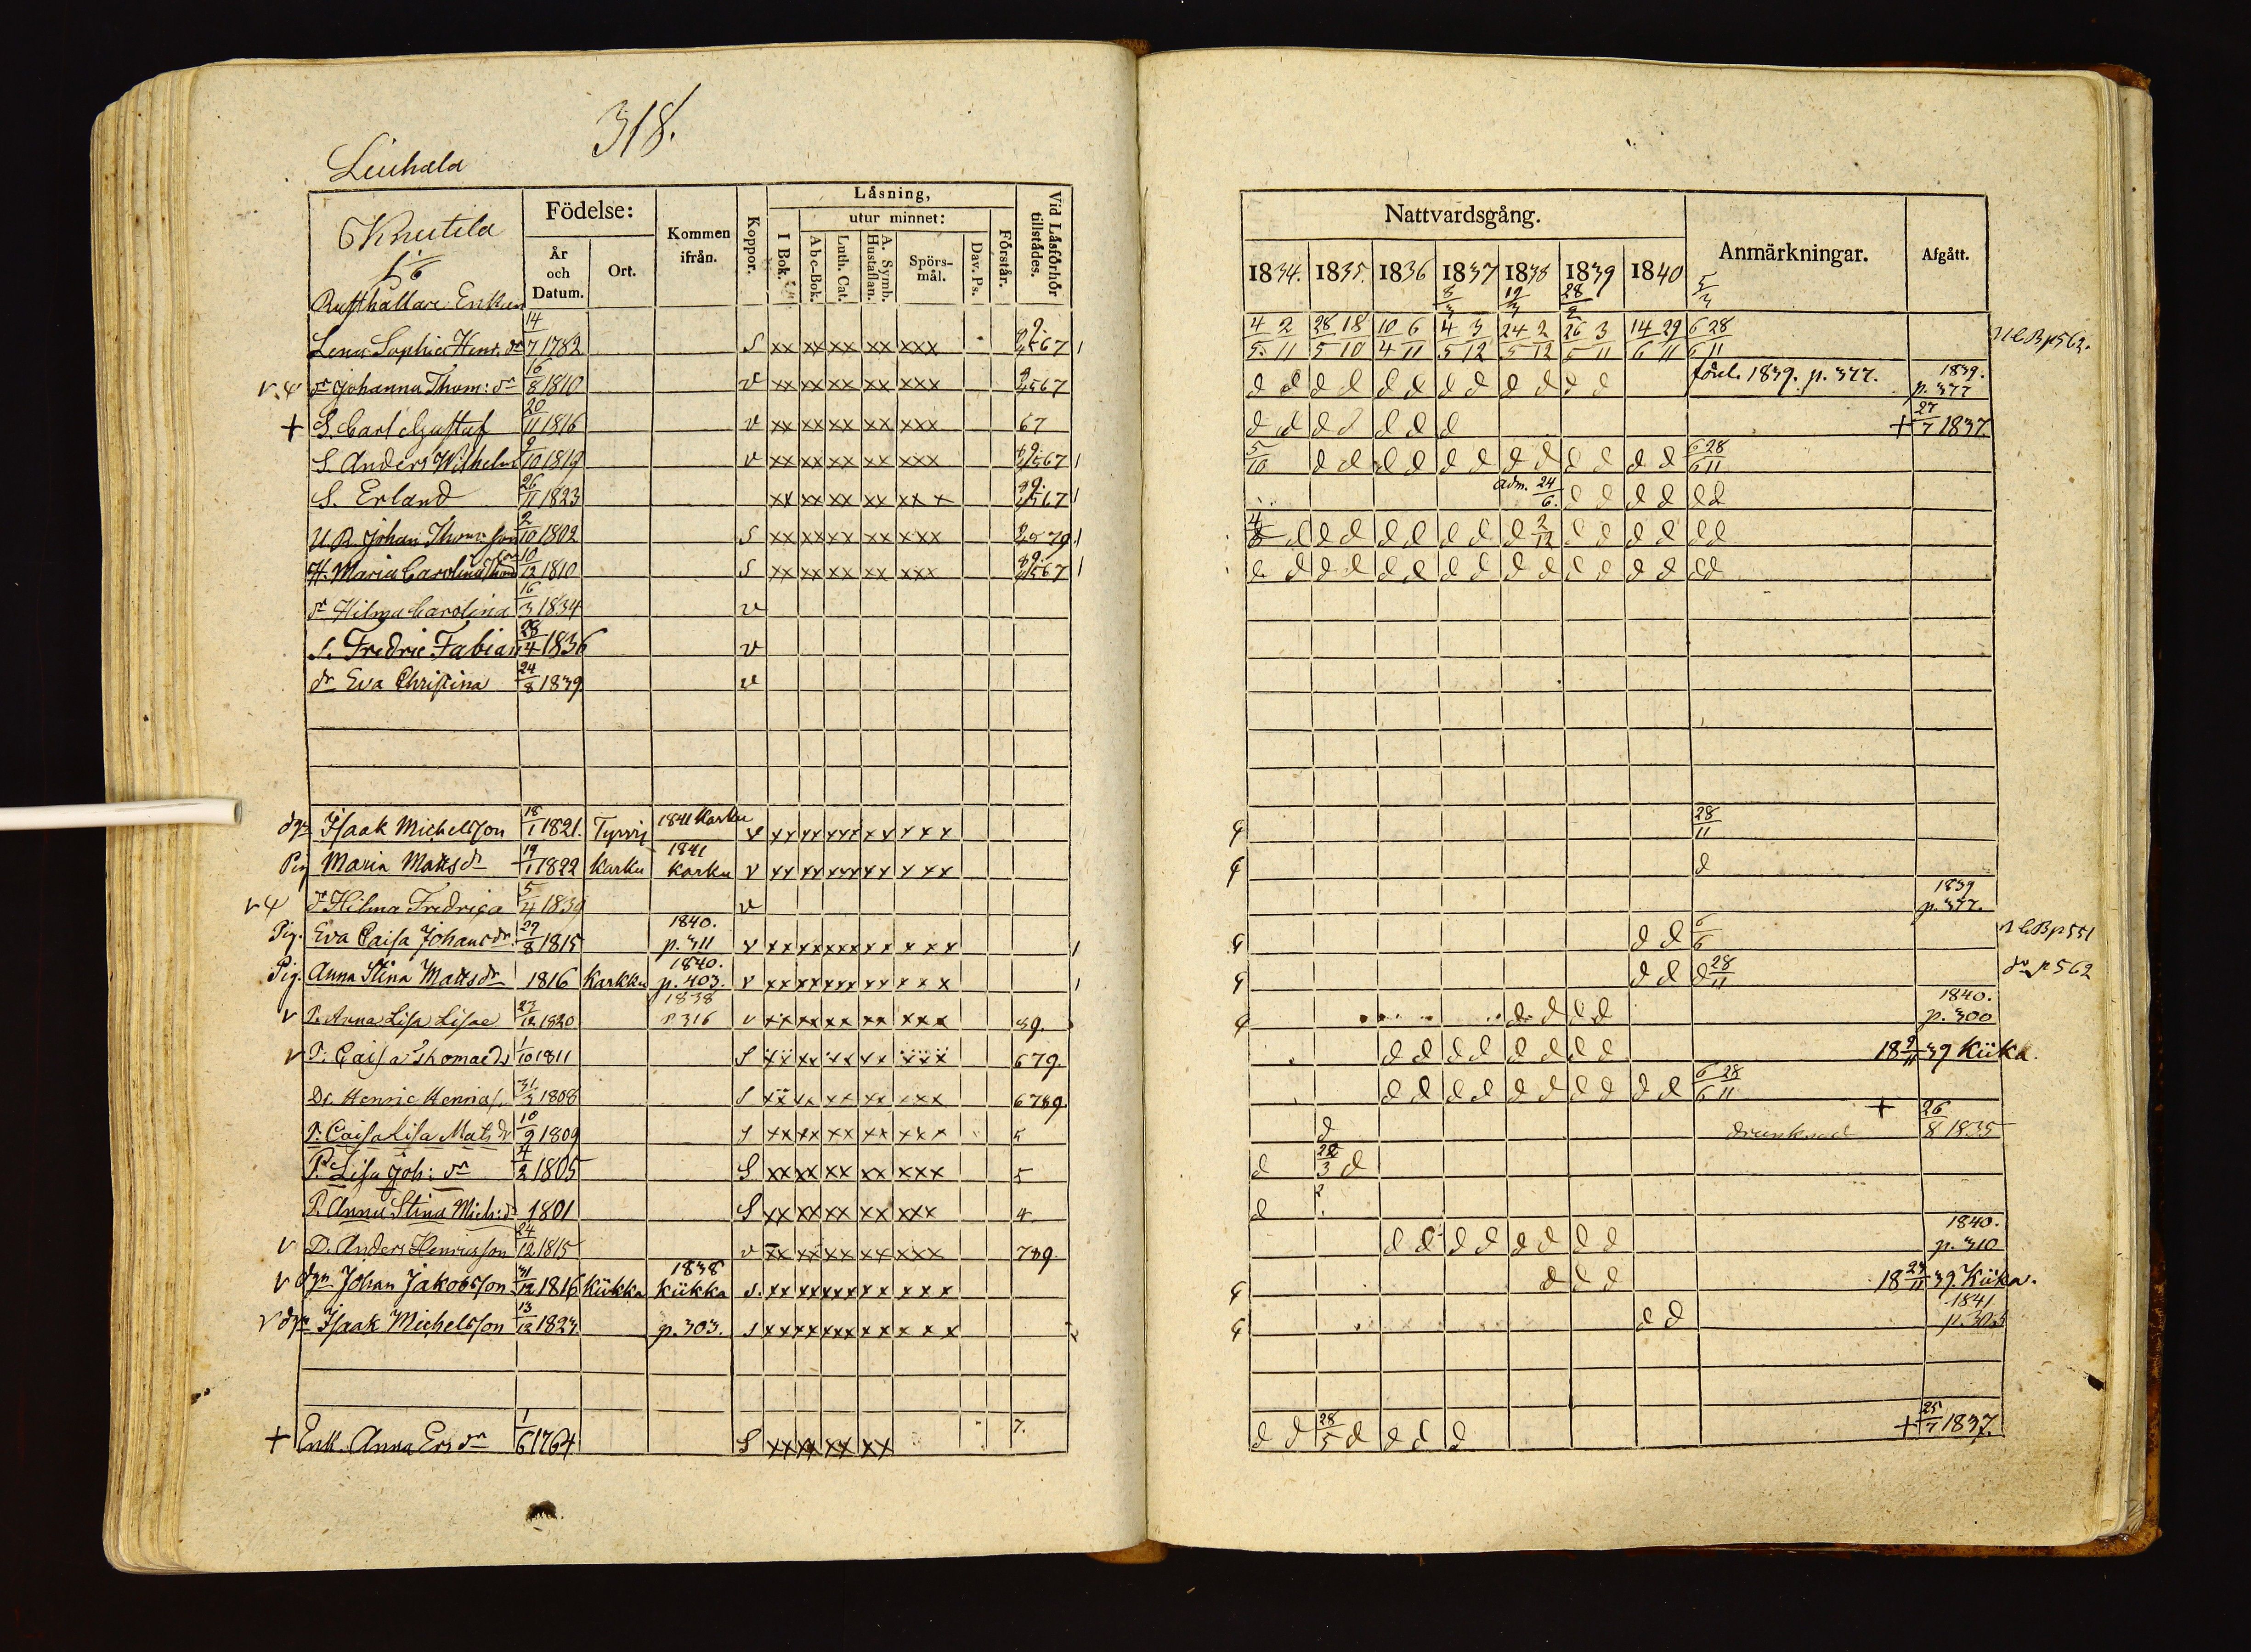 318.
Liuhala
Knutila
1/6
Födelse:
År och Datum.
Ort.
Kommen ifrån.
Koppor.
Läsning,
I Bok.
utur minnet:
Abc-Bok.
Luth. Cat.
A. Symb. Hustaflan.
Spörs-mål.
Dav. Ps.
Förstår.
Vid Läsförhör tillstädes.
Rusthållare Enkan
Lena Sophia Henr. dr 14/7 1782 S xx xx xx xx xxx
dr Johanna Thom: dr 16/8 1810 v xx xx xx xx xxx
+ S. Carl Gustaf 20/11 1816 v xx xx xx xx xxx 67
S. Anders Wilhelm 9/10 1819 v xx xx xx xx xxx
S. Erland 26/11 1823 xx xx xx xx xx x
U. B. Johan Thomsson 2/10 1802 S xx xx xx xx xxx
H. Maria Carolina 10/12 1810 S xx xx xx xx xxx
dr Hilma Carolina 16/3 1834 v
s. Fredric Fabian 28/4 1836 v
dr Eva Christina 24/8 1839 v
dgn Isaak Michelsson 18/1 1821. Tyrvis 1841 Karku v xx xx xxx xx xxx
Pig Maria Matts dr 19/1 1822 Karku 1841 Karku v xx xx xxx xx xxx
dr Hilma Fredrica 5/4 1839 v
Pig. Eva Caisa Johansdr. 29/8 1815 1840. p. 311 v xx xx xxx xx xxx
Pig. Anna Stina Mattsdr 1816 Karkku 1840. p. 403. v xx xx xxx xx xxx
v P. Anna Lisa Lisae 23/12 1820 1838 p 316 v xx xx xx xx xxx 89.
v P. Caisa Thomae Dr 1/10 1811 S xx xx xx xx xxx 679.
Dr. Henric Henrics. 31/3 1808 S xx xx xx xx xxx 6789.
P. Caisa Lisa Mats dr 10/9 1809 S xx xx xx xx xxx 5
P. Lisa Joh: dr 4/2 1805 S xx xx xx xx xxx 5
P. Anna Stina Mich: dr 1801 S xx xx xx xx xxx 4
v D. Anders Henricsson 24/12 1815 v xx xx xx xx xxx 789.
v dgn Johan Jakobsson 31/12 1816 Kiikka 1838 Kiikka s. xx xx xxx xx xxx
v dgn Isaak Michelsson 13/12 1823 p. 303. s xx xx xxx xx xxx
+ Enk. Anna Ers dr 1/6 1764 S xx xx xx xx 7.
Nattvardsgång.
Anmärkningar.
Afgått.
1834. 1835. 1836 1837 1838 1839 1840
8/3 19/3 28/2 5/3
4/5 2/11 28/5 18/10 10/4 6/11 4/5 3/12 24/5 2/12 26/5 3/11 14/6 29/11 6/6 28/11
d d d d d d d d d d d d förel. 1839. p. 377. 1839. p. 377
d d d d d d d + 27/7 1837.
5/10 d d d d d d d d d d d d 6/6 28/11
adm. 24/6. d d d d d d
d d d d d d d d 2/12 d d d d d d
d d d d d d d d d d d d d d d d
28/11
d
1839 p. 377.
d d 6/6
d d d 28/11 dr p 562
d d d d 1840. p. 300
d d d d d d d d 18 9/11 39 Kiika.
d d d d d d d d d d 6/6 28/11
d drunknad + 26/8 1835
d 22/3 d
d
d d d d d d d d 1840. p. 310
d d d 18 23/11 39. Kiika.
d d 1841 p. 305
d d 28/5 d d d d + 25/7 1837.